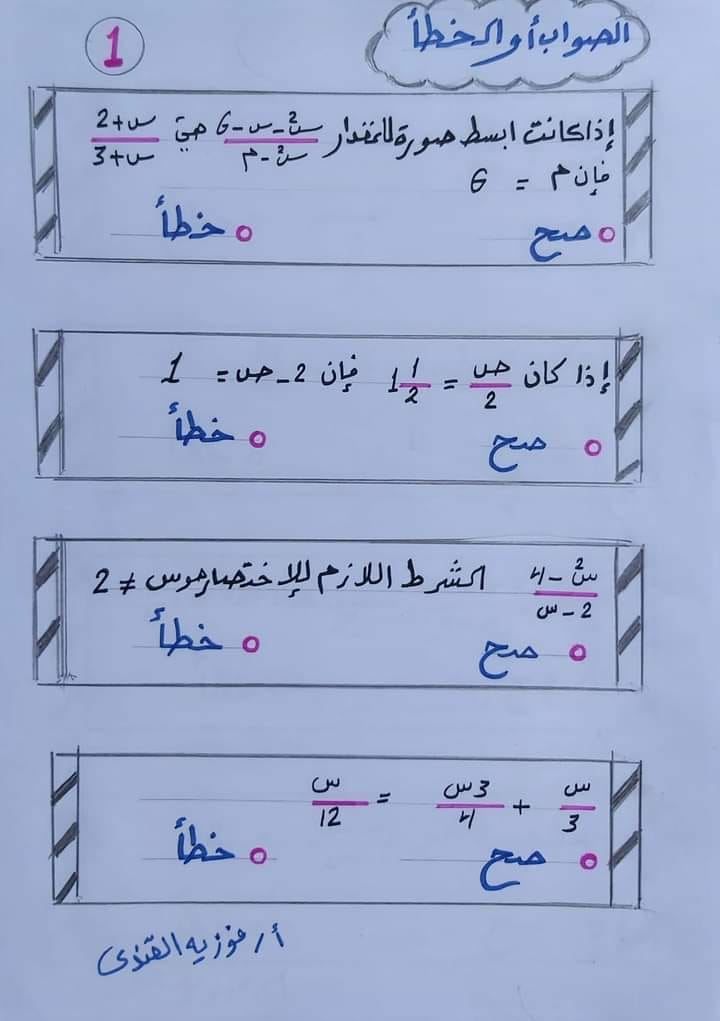 الصواب أو الخطأ
1
إذا كانت ابسط صورة للمقدار (س² - س - 6)/(س² - م) هي (س + 2)/(س + 3)
فإن م = 6
صح خطأ
إذا كان ص/2 = 1 1/2 فإن 2 - ص = 1
صح خطأ
(س² - 4)/(2 - س) الشرط اللازم للإختصار هو س ≠ 2
صح خطأ
س/3 + 3س/4 = س/12
صح خطأ
أ/ فوزيه القندى